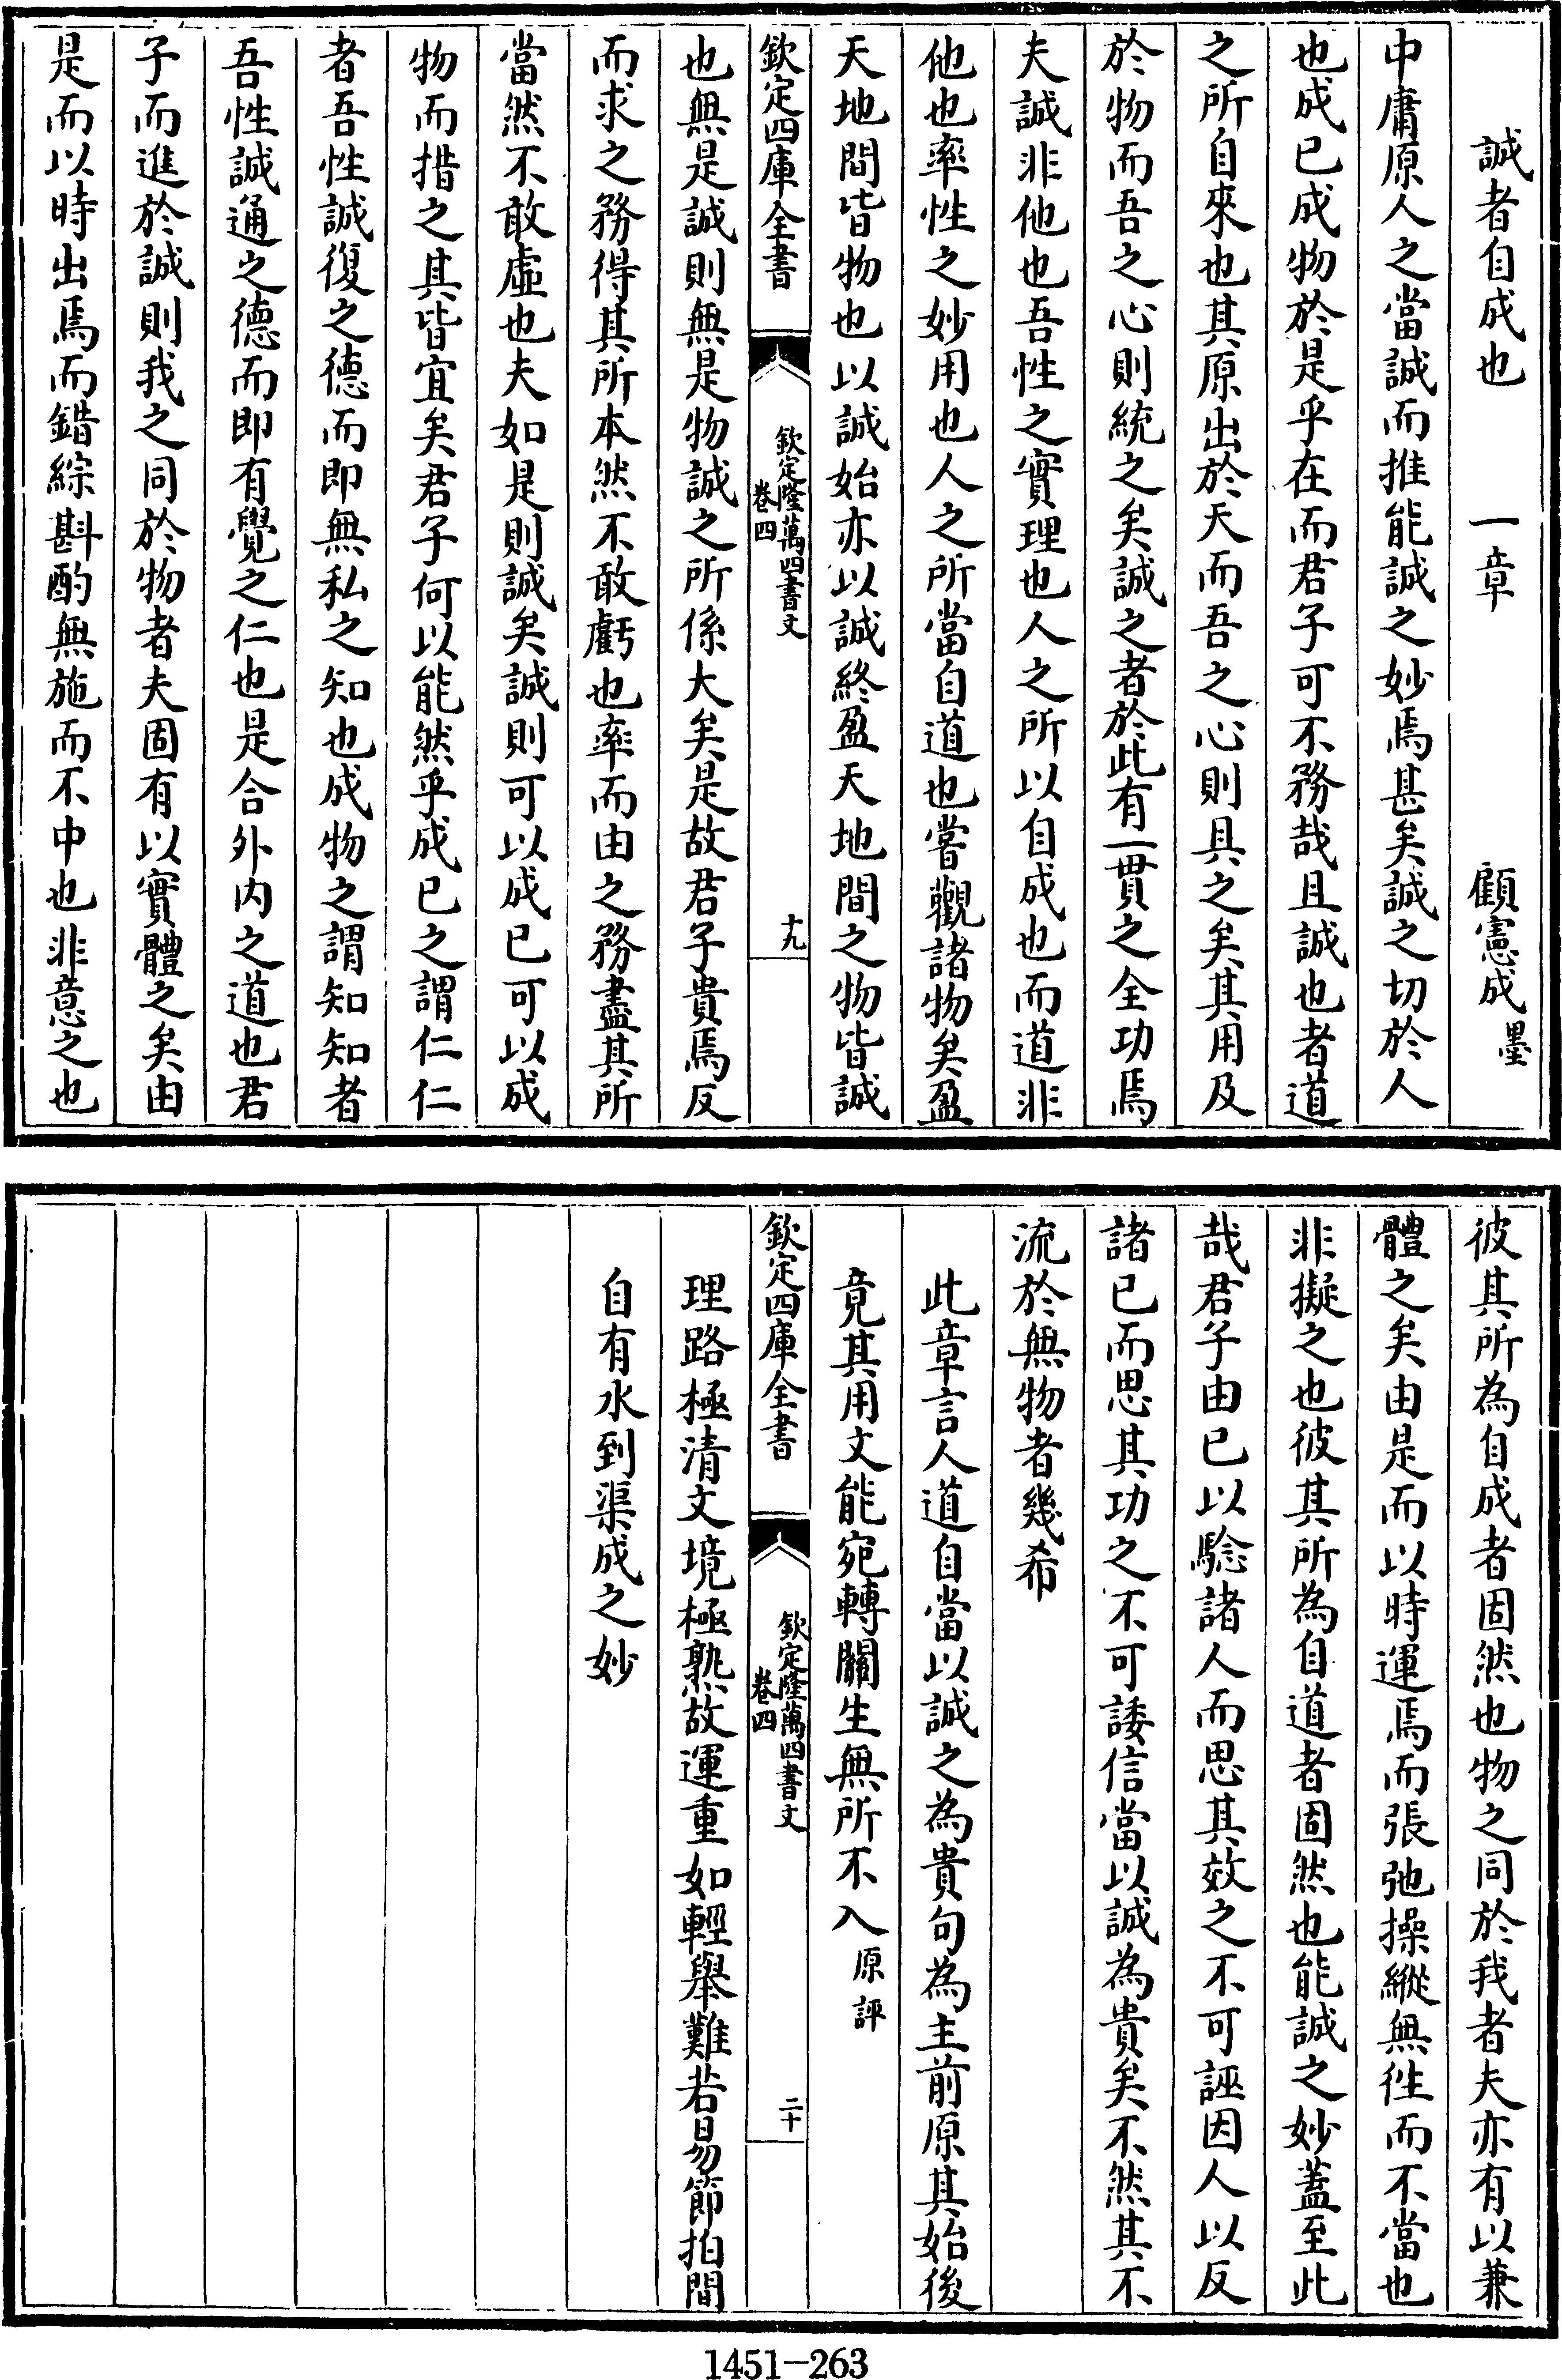 誠者自成也　一章　顧憲成墨
中庸原人之當誠而推能誠之妙焉甚矣誠之切於人
也成已成物於是乎在而君子可不務哉且誠也者道
之所自來也其原出於天而吾之心則具之矣其用及
於物而吾之心則統之矣誠之者於此有一貫之全功焉
夫誠非他也吾性之實理也人之所以自成也而道非
他也率性之妙用也人之所當自道也嘗觀諸物矣盈
天地間皆物也以誠始亦以誠終盈天地間之物皆誠
欽定四庫全書
欽定隆萬四書文
卷四
十九
也無是誠則無是物誠之所係大矣是故君子貴焉反
而求之務得其所本然不敢虧也率而由之務盡其所
當然不敢虛也夫如是則誠矣誠則可以成已可以成
物而措之其皆宜矣君子何以能然乎成已之謂仁仁
者吾性誠復之德而即無私之知也成物之謂知知者
吾性誠通之德而即有覺之仁也是合外内之道也君
子而進於誠則我之同於物者夫固有以實體之矣由
是而以時出焉而錯綜斟酌無施而不中也非意之也
彼其所為自成者固然也物之同於我者夫亦有以兼
體之矣由是而以時運焉而張弛操縱無徃而不當也
非擬之也彼其所為自道者固然也能誠之妙蓋至此
哉君子由已以騐諸人而思其效之不可誣因人以反
諸已而思其功之不可諉信當以誠為貴矣不然其不
流於無物者幾希
此章言人道自當以誠之為貴句為主前原其始後
竟其用文能宛轉關生無所不入原評
欽定四庫全書
欽定隆萬四書文
卷四
二十
理路極清文境極熟故運重如輕舉難若易節拍間
自有水到渠成之妙
1451-263